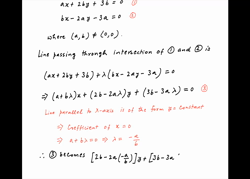 ax + 2by + 3b = 0 ①
bx - 2ay - 3a = 0 ②
where (a,b) ≠ (0,0).
Line passing through intersection of ① and ② is
(ax + 2by + 3b) + λ(bx - 2ay - 3a) = 0
⇒ (a+bλ)x + (2b - 2aλ)y + (3b - 3aλ) = 0 ③
Line parallel to x-axis is of the form y = constant
⇒ Coefficient of x = 0
⇒ a + bλ = 0 ⇒ λ = -a/b
∴ ③ becomes [2b - 2a(-a/b)]y + [3b - 3a